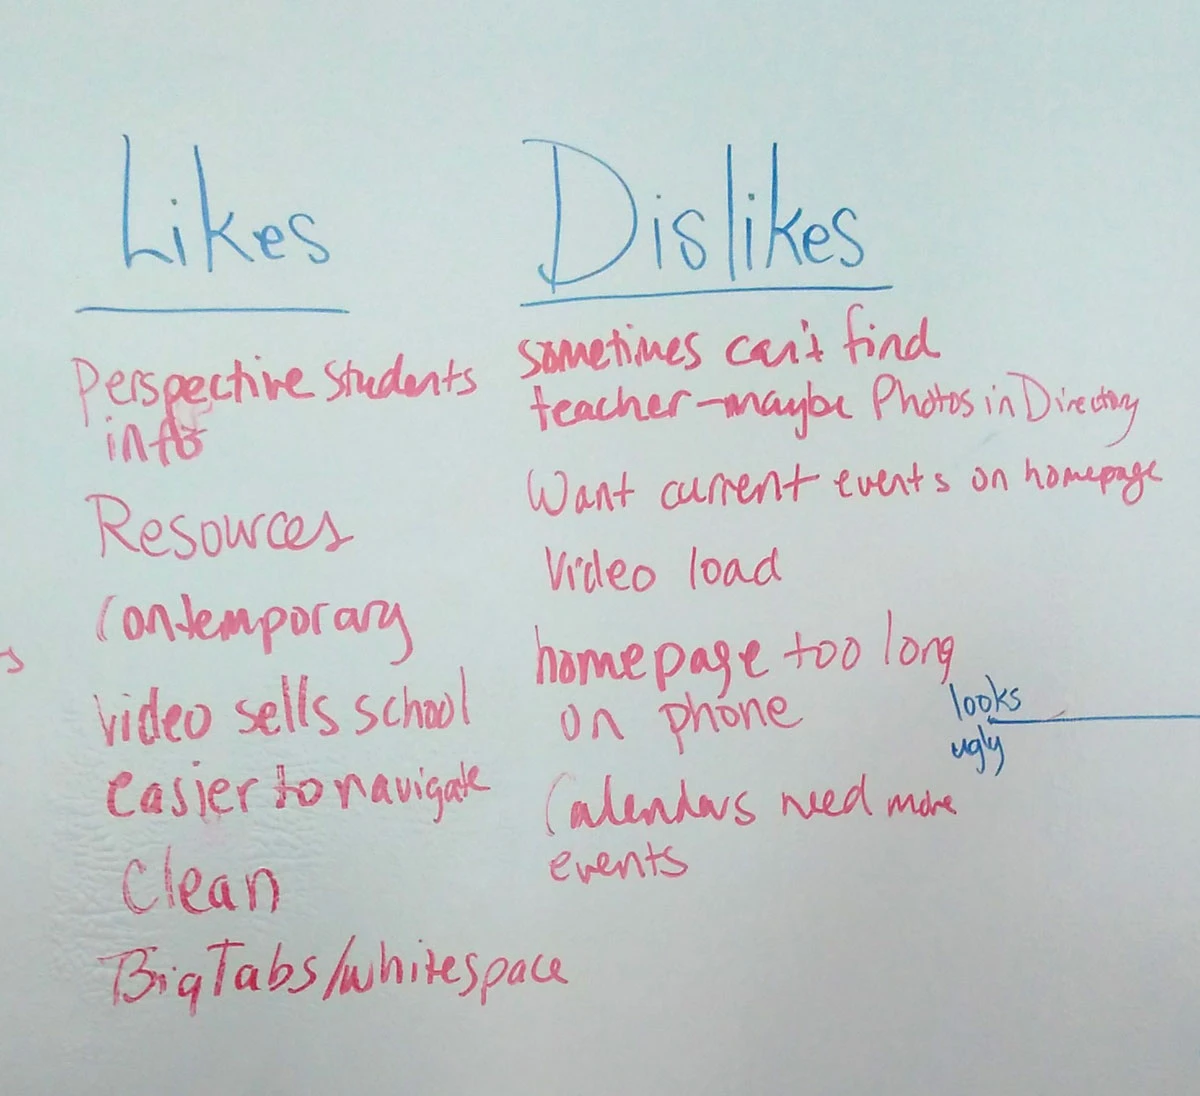 Likes
Perspective students
info
Resources
Contemporary
video sells school
easier to navigate
Clean
Big Tabs/whitespace
Dislikes
sometimes can't find
teacher-maybe Photos in Directory
Want current events on homepage
Video load
homepage too long
on phone
Calendars need more
events
looks
ugly